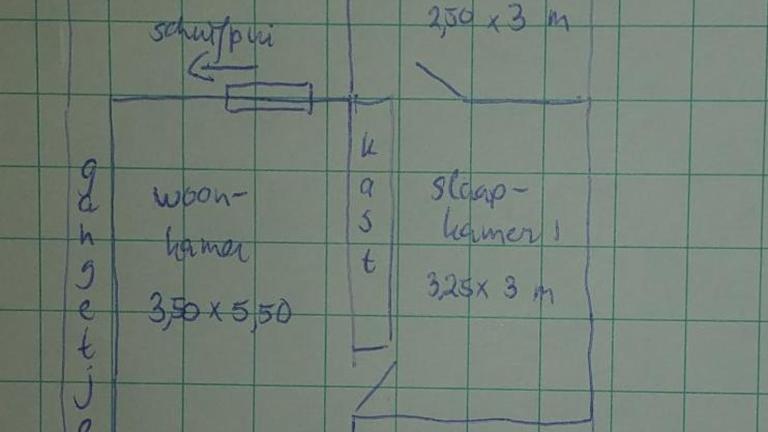 2,50 x 3 m
schuifpui
gangetje
kast
woon-
kamer
3,50 x 5,50
slaap-
kamer 1
3,25 x 3 m